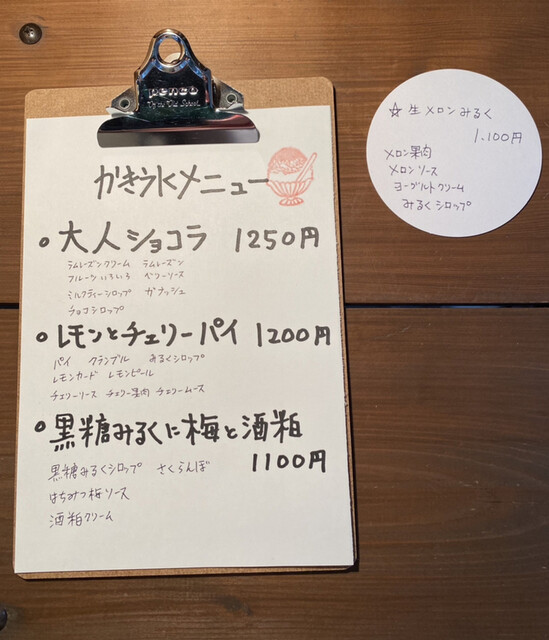 penco
かき氷メニュー
大人ショコラ 1250円
ラムレーズンクリーム ラムレーズン
フルーツいろいろ ベリーソース
ミルクティーシロップ ガナッシュ
チョコシロップ
レモンとチェリーパイ 1200円
パイ クランブル みるくシロップ
レモンカード レモンピール
チェリーソース チェリー果肉 チェリームース
黒糖みるくに梅と酒粕
1100円
黒糖みるくシロップ さくらんぼ
はちみつ梅ソース
酒粕クリーム
☆ 生メロンみるく
1.100円
メロン果肉
メロンソース
ヨーグルトクリーム
みるくシロップ